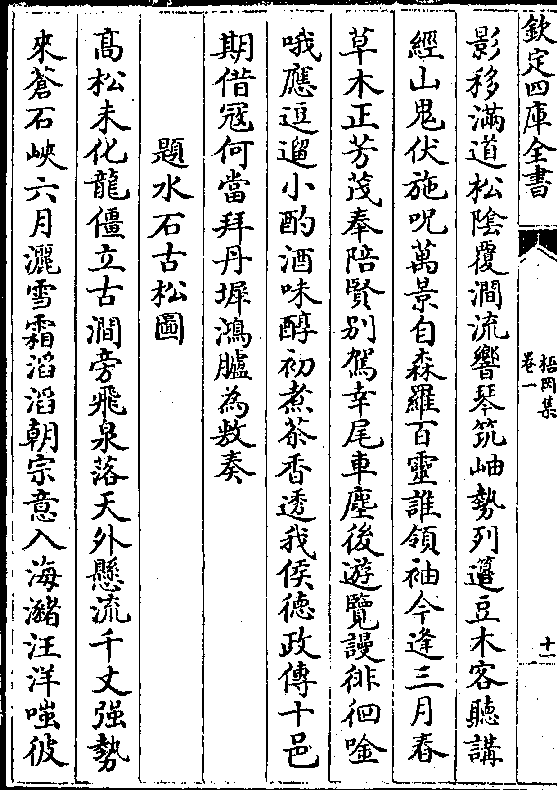 欽定四庫全書
梧岡集
卷一
十一
影移滿道松陰覆澗流響琴筑岫勢列籩豆木客聽講
經山鬼伏施呪萬景自森羅百靈誰領袖今逢三月春
草木正芳茂奉陪賢别駕幸尾車塵後遊覽謾徘徊唫
哦應逗遛小酌酒味醇初煮茶香透我侯德政傳十邑
期借冦何當拜丹墀鴻臚為敷奏
題水石古松圖
髙松未化龍僵立古澗旁飛泉落天外懸流千丈强勢
來蒼石峽六月灑雪霜滔滔朝宗意入海瀦汪洋嗤彼